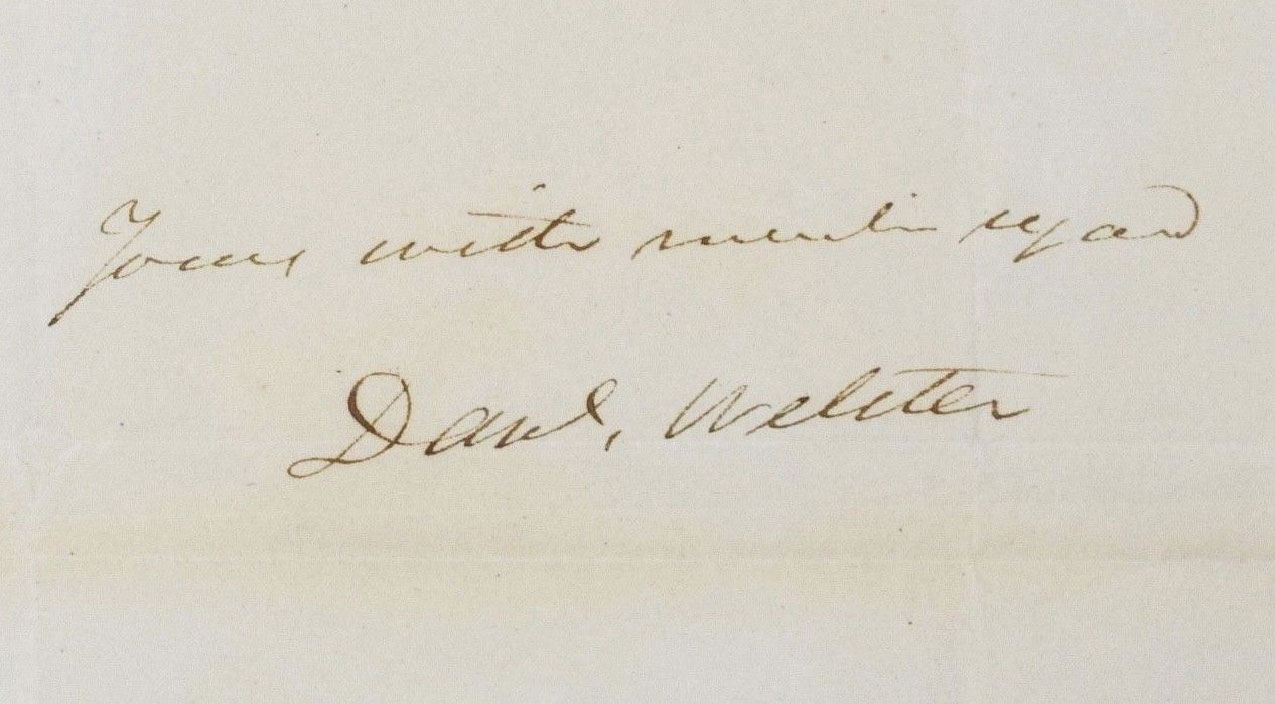 Yours with much regard
Danl. Webster